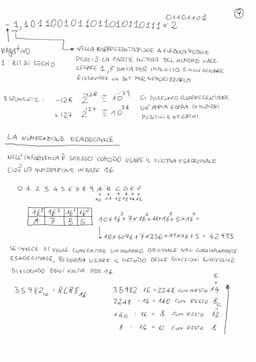 7
01101101
- 1,10110010110110101101111 × 2
NEGATIVO
1 : BIT DI SEGNO
NELLA RAPPRESENTAZIONE A VIRGOLA MOBILE
PERCHÉ LA PARTE INTERA DEL NUMERO VALE
SEMPRE 1, È DATA PER IMPLICITA E NON OCCORRE
RISERVARE UN BIT PER MEMORIZZARLA
ESPONENTE :
-128 2^128 ≅ 10^-39
+127 2^127 ≅ 10^38
SI POSSONO RAPPRESENTARE
UN'AMPIA GAMMA DI NUMERI
POSITIVI E NEGATIVI.
LA NUMERAZIONE ESADECIMALE
NELL'INFORMATICA È SPESSO COMODO USARE IL SISTEMA ESADECIMALE
CIOÈ LA NUMERAZIONE IN BASE 16
0 1 2 3 4 5 6 7 8 9 A B C D E F
10 11 12 13 14 15
16³ 16² 16¹ 16⁰
A 7 B 5
10×16³+7×16²+11×16¹+5·16⁰=
10×4096+7×256+11×16+5 = 42933
SE INVECE SI VUOLE CONVERTIRE UN NUMERO DECIMALE NELL'CORRISPONDENTE
ESADECIMALE, BISOGNA USARE IL METODO DELLE DIVISIONI SUCCESSIVE
DIVIDENDO OGNI VOLTA PER 16.
35982₁₀ = 8C8E₁₆
E
35982 : 16 = 2248 CON RESTO 14
2248 : 16 = 140 CON RESTO 8
C
140 : 16 = 8 CON RESTO 12
8 : 16 = 0 CON RESTO 8